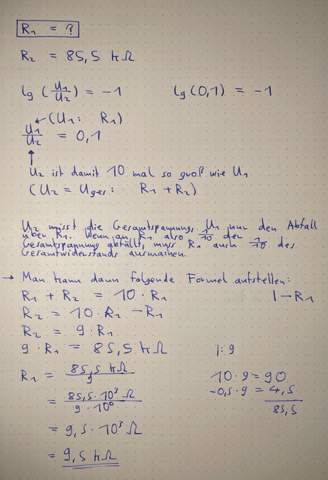 R₁ = ?
R₂ = 85,5 kΩ
lg (U₁/U₂) = -1 lg (0,1) = -1
(U₁: R₁)
U₁/U₂ = 0,1
U₂ ist damit 10 mal so groß wie U₁
(U₂ = Uges: R₁ + R₂)
U₂ misst die Gesamtspannung, U₁ nur den Abfall
über R₁. Wenn an R₁ also 1/10 der
Gesamtspannung abfällt, muss R₁ auch 1/10 des
Gesamtwiderstands ausmachen.
→ Man kann dann folgende Formel aufstellen:
R₁ + R₂ = 10 · R₁ | - R₁
R₂ = 10 · R₁ - R₁
R₂ = 9 · R₁
9 · R₁ = 85,5 kΩ | : 9
R₁ = 85,5 kΩ / 9 10 · 9 = 90
= 85,5 · 10³ Ω / 9 · 10⁰ -0,5 · 9 = 4,5
85,5
= 9,5 · 10³ Ω
= 9,5 kΩ